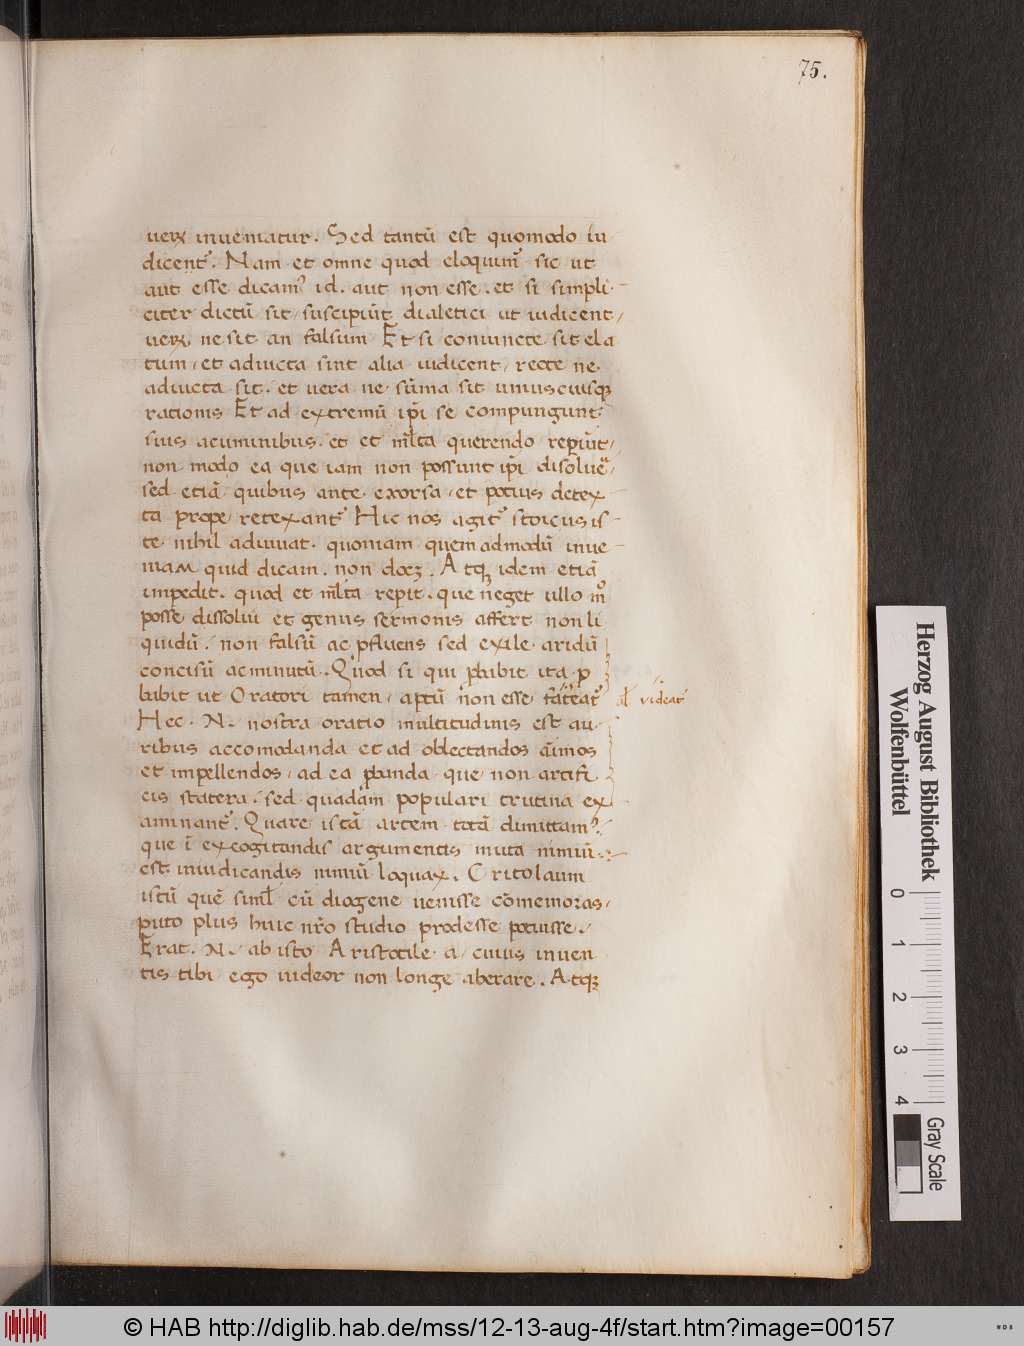 75.
ueꝝ inueniatur. Sed tantũ est quomodo iu
dicent᷑. Nam et omne quod eloquim᷑ sic ut
aut esse dicam᷒ id. aut non esse. et si simpli
citer dictũ sit / suscipiũt dialetici ut iudicent /
ueꝝ ne sit an falsum Et si coniuncte sit ela
tum / et adiucta sint alia iudicent / recte ne
adiucta sit. et uera ne sũma sit uniuscuisqꝫ
rationis Et ad extremũ ip̃i se compungunt
suis acuminibus. et et ml̃ta querendo reperiũt /
non modo ea que iam non possunt ip̃i disoluẽ /
sed etiã quibus ante exorsa / et potius detex
ta prope retexant᷑ Hic nos agit᷑ stoicus is
te nihil adiuuat. quoniam quemadmodũ inue
niam quid dicam. non docꝫ. Atqꝫ idem etiã
impedit. quod et ml̃ta reperit. que neget ullo mͦ
posse dissolui et genus sermonis affert non li
quidũ. non falsũ ac ꝓfluens sed exile aridũ
concisũ ac minutũ. Quod si qui ꝓbabit ita ꝓ
babit ut Oratori tamen / aptũ non esse fateat᷑
al̃ videat᷑
Hec. N. nostra oratio multitudinis est au
ribus accomodanda et ad oblectandos aĩmos
et impellendos / ad ea ꝓbanda que non artifi
cis statera / sed quadam populari trutina ex
aminant᷑. Quare istã artem totã dimittam᷒ /
que ĩ excogitandis argumentis muta nimiũ
est iniudicandis nimiũ loquax. Critolaum
istũ quẽ siml̃ cũ diogene uenisse cõmemoras /
puto plus huic nr̃o studio prodesse potuisse.
Erat. N. ab isto Aristotile a / cuius inuen
tis tibi ego uideor non longe aberrare. Atqꝫ
Herzog August Bibliothek
Wolfenbüttel
0 1 2 3 4
Gray Scale
© HAB http://diglib.hab.de/mss/12-13-aug-4f/start.htm?image=00157